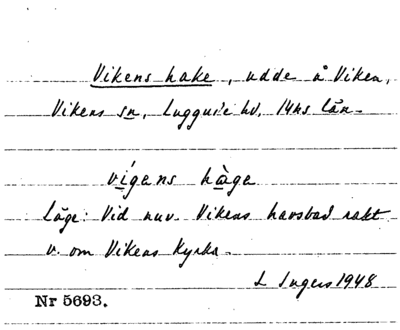 Vikens hake, udde å Viken,
Vikens sn, Luggude hd, Mhs län.
vígens hàge
Läge: Vid nuv. Vikens havsbad rakt
v. om Vikens Kyrka.
I Ingers 1948
Nr 5693.